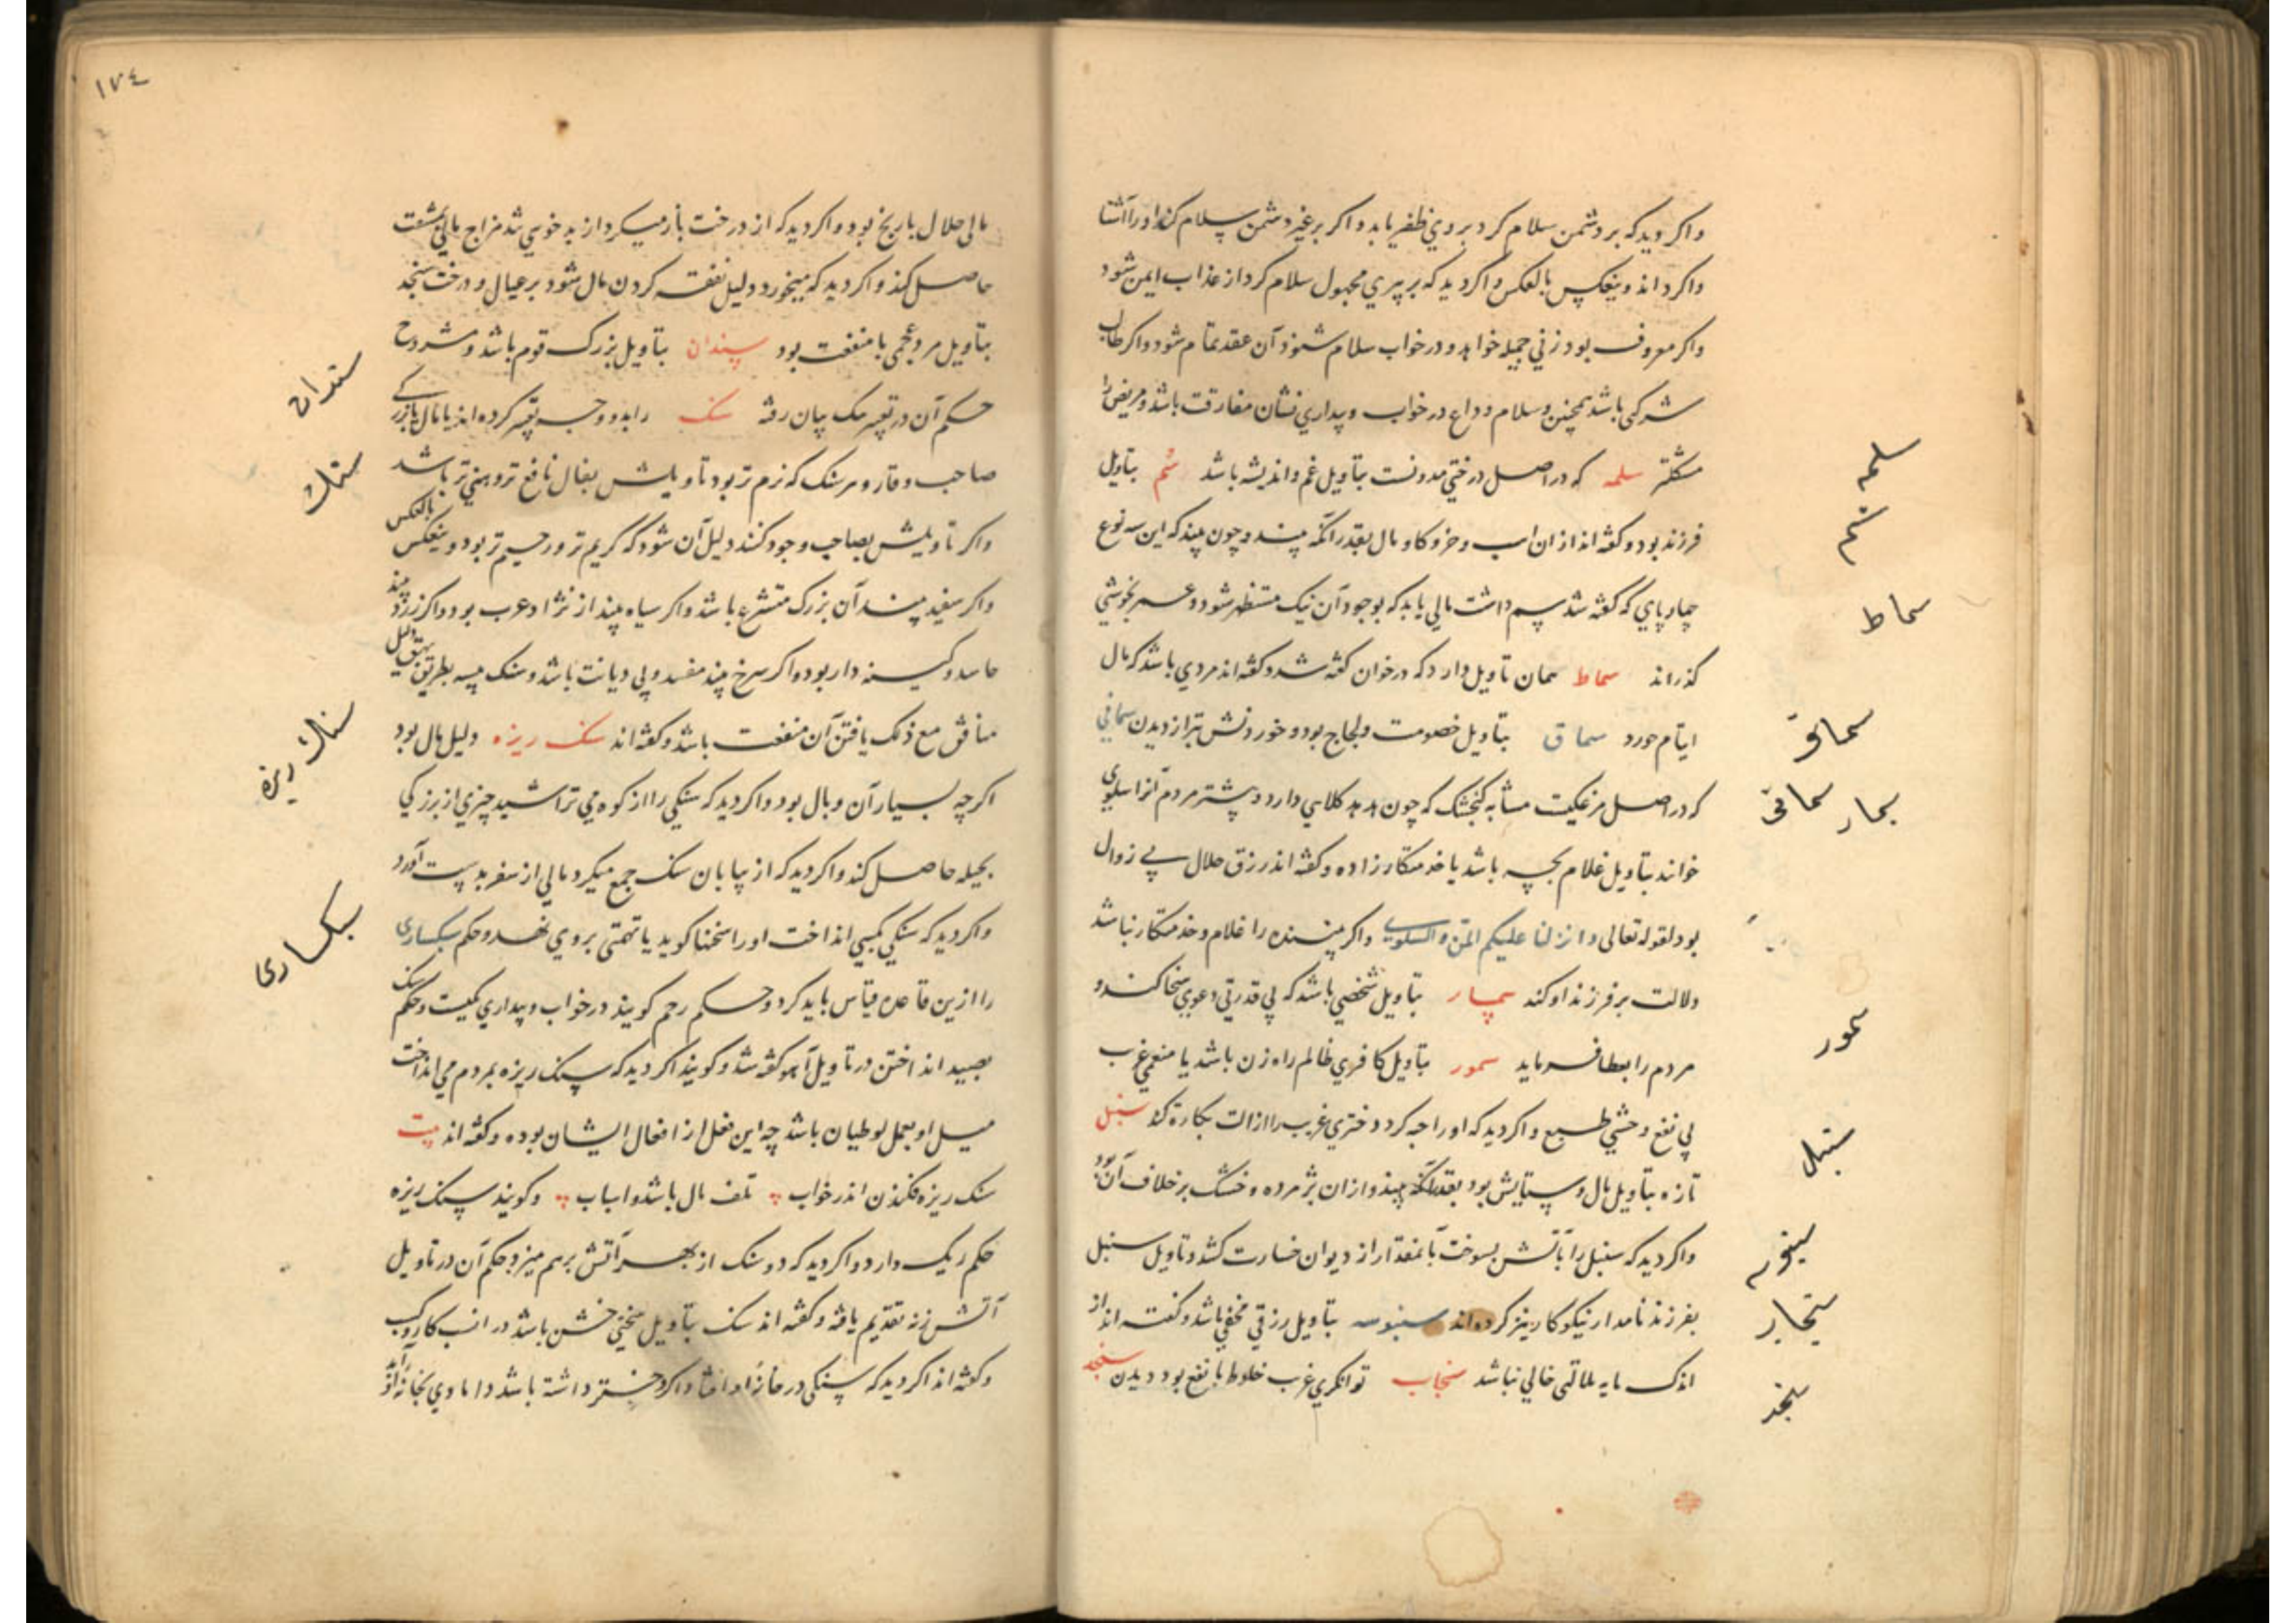 واکر دید که بر دشمن سلام کرد بر وی ظفر یابد واکر بر غیر دشمن سلام کند او را آشنا
واکرداند وبنعکس بالعکس واکر دید که بر پیری مجهول سلام کرد از عذاب ایمن شود
واکر معروف بود زنی جمیله خواهد ودر خواب سلام شنود آن عقد تمام شود واکر طالب
شرکی باشد همچنین وسلام وداع در خواب وبیداری نشان مفارقت باشد ومریض را
مشکلتر سلمه که در اصل درختی مدونست بتاویل غم واندیشه باشد سم بتاویل
فرزند بود وکفته اند از ان اسب وخر وکاو مال بقدر آنکه بیند وچون بیند که این سه نوع
چهارپای که کفته شد سم داشت مالی یابد که بوجود آن نیک مستظهر شود وعمر بخوشی
کذراند سماط همان تاویل دارد که در خوان کفته شد وکفته اند مردی باشد که مال
ایتام خورد سماق بتاویل خصومت ولجاج بود وخوردنش بتر از دیدن سمانی
که در اصل مرغکیست مشابه کنجشک که چون هدهد کلاهی دارد وبیشتر مردم آنرا سلوی
خوانند بتاویل غلام بچه باشد یا خدمتکار زاده وکفته اند رزق حلال بی زوال
بود لقوله تعالی وانزلنا علیکم المن والسلوی واکر بیننده را غلام وخدمتکار نباشد
دلالت بر فرزند او کند سمسار بتاویل شخصی باشد که بی قدرتی دعوی سخا کند و
مردم را بعطا فرماید سمور بتاویل کافری ظالم راه زن باشد یا منعمی غریب
بی نفع وحشی طبع واکر دید که او را جه کرد دختری غریب را ازالت بکارة کند سنبل
تازه بتاویل مال وستایش بود بقدر آنکه بیند واز ان پژمرده وخشک بر خلاف آن بود
واکر دید که سنبل را بآتش بسوخت بآنمقدار از دیوان خسارت کشد وتاویل سنبل
بفرزند نامدار نیکوکار نیز کرده اند سنبوسه بتاویل رزقی مخفی باشد وکفته اند از
اندک مایه ملالتی خالی نباشد سنجاب توانکری غریب خلوط با نفع بود دیدن سنجد
سلمه
سم
سماط
سماق
سمانی
سمسار
سمور
سنبل
سنجاب
سنجد
١٧٤
مالی حلال با رنج بود واکر دید که از درخت باز میکرد از بد خوی تند مزاج مالی بمشقت
حاصل کند واکر دید که میخورد دلیل نفقه کردن مال شود بر عیال ودرخت سنجد
بتاویل مرد عجمی با منفعت بود سندان بتاویل بزرک قوم باشد ومشروح
حکم آن در تعبیر بیان رفته سنک را بدو وجه تعبیر کرده اند یا بمال یا بزرکی
صاحب وقار وهر سنک که نرم تر بود تاویلش بفال نافع تر وهنی تر باشد
واکر تاویلش بصاحب وجود کنند دلیل آن شود که کریم تر ورحیم تر بود وبنعکس بالعکس
واکر سفید بیند آن بزرک متشرع باشد واکر سیاه بیند از نژاد عرب بود واکر زرد بیند
حاسد وکینه دار بود واکر سرخ بیند مفسد وبی دیانت باشد وسنک پیسه بطریق دلیل
منافق مع ذلک یافتن آن منفعت باشد وکفته اند سنک ریزه دلیل مال بود
اکرچه بسیار آن وبال بود واکر دید که سنکی را از کوه می تراشید چیزی از بزرکی
بحیله حاصل کند واکر دید که از بیابان سنک جمع میکرد مالی از سفر بدست آورد
واکر دید که سنکی بکسی انداخت او را سخنها کوید یا تهمتی بر وی نهد وحکم سنکساری
را ازین قاعده قیاس باید کرد وحکم رجم کویند در خواب وبیداری یکیست وحکم سنک
بصید انداختن در تاویل آهو کفته شد وکویند اکر دید که سنک ریزه بمردم می انداخت
میل او بعمل لوطیان باشد چه این فعل از افعال ایشان بوده وکفته اند بیت
سنک ریزه فکندن اندر خواب تلف مال باشد واسباب وکویند سنک ریزه
حکم ریک دارد واکر دید که دو سنک از بهر آتش برهم میزد حکم آن در تاویل
آتش زنه تقدیم یافته وکفته اند سنک بتاویل سختی خشن باشد در
وکفته اند اکر دید که سنکی در خانه او افتاد اکر دختر داشته باشد دامادی بخانه آورد
سندان
سنك
سنك ریزه
سنکساری